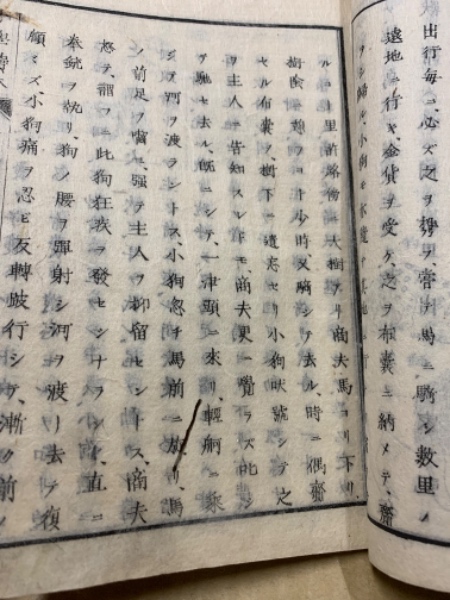 出行毎ニ、必ズ之ヲ勢フ、嘗テ馬ニ騎シ數里ノ
遠地ニ行キ、金貨ヲ受ケ、之ヲ布嚢ニ納メテ、齋
ラシ歸ル、小狗モ亦
ルコト里許路傍ニ大樹アリ商夫馬ヨリ下リ
樹陰ニ憩フコト少時、又騎シテ去ル、時ニ偶齋
セル布嚢ヲ、樹下ニ遺忘セリ小狗吠號シテ之
ヲ主人ニ告知スレドモ商夫更ニ覺ラズ、
ヲ馳セ去ル、既ニシテ、一津頭ニ來リ、輕舸ニ乘
ジテ河ヲ渡ラントス、小狗忽チ馬前ニ放リ、馬
ノ前足ヲ嚙ミ、强テ主人ヲ抑留セントス、商夫
怒テ、謂フニ此狗狂疾ヲ發セシナラント、直ニ
拳銃ヲ執リ、狗ノ腰ヲ彈射シ河ヲ渡リ去テ復
顧ミズ、小狗痛ヲ忍ビ反轉跛行シテ、漸ク前ノ